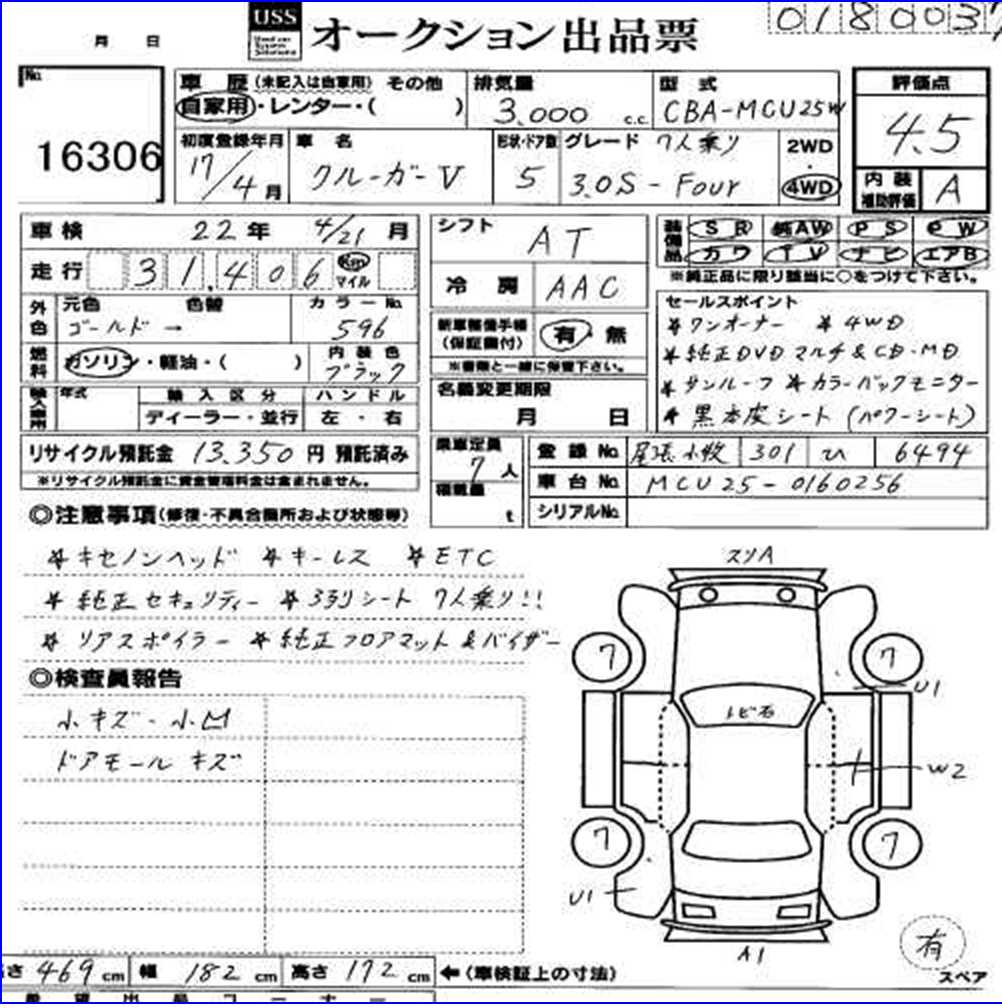 月 日
USS
Used car
System
Solutions
オークション出品票
0180037
No.
16306
車 歴 (未記入は自家用) その他
自家用・レンター・( )
排気量
3,000 c.c.
型 式
CBA-MCU25W
評価点
4.5
内 装
補助評価
A
初度登録年月
17/4月
車 名
クルーガーV
形状・ドア数
5
グレード 7人乗り
3.0S-Four
2WD
・
4WD
車検 22年 4/21月
走行 31,406 Km マイル
シフト
AT
冷 房 AAC
装備品
SR 純AW PS PW
カワ TV ナビ エアB
※純正品に限り該当に○をつけて下さい。
外色
元色 色替
ゴールド →
カラーNo.
596
燃料
ガソリン・軽油・( )
内 装 色
ブラック
新車整備手帳
(保証書付)
有・無
※書類と一緒に保管下さい。
セールスポイント
*ワンオーナー *4WD
*純正DVDマルチ&CD・MD
*サンルーフ *カラーバックモニター
*黒本皮シート(パワーシート)
輸入車用
年式
輸 入 区 分
ディーラー・並行
ハ ン ド ル
左 ・ 右
名義変更期限
月 日
リサイクル預託金 13,350 円 預託済み
※リサイクル預託金に資金管理料金は含まれません。
乗車定員
7人
積載量
t
登 録 No. 尾張小牧 301 ひ 6494
車 台 No. MCU25-0160256
シリアルNo.
◎注意事項(修復・不具合箇所および状態等)
*キセノンヘッド *キーレス *ETC
*純正セキュリティー *3列シート 7人乗り!!
*リアスポイラー *純正フロアマット&バイザー
◎検査員報告
小キズ・小凹
ドアモール キズ
スリA
7
7
U1
トビ石
W2
7
7
U1
A1
有
スペア
さ 469 cm 幅 182 cm 高さ 172 cm ←(車検証上の寸法)
希 望 出 品 コ ー ナ ー